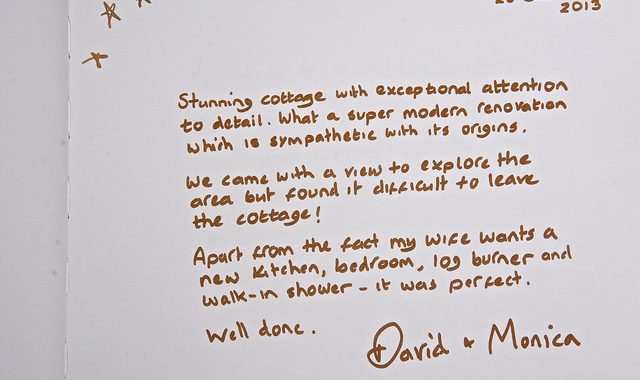 2013
Stunning cottage with exceptional attention
to detail. What a super modern renovation
which is sympathetic with its origins.
We came with a view to explore the
area but found it difficult to leave
the cottage!
Apart from the fact my wife wants a
new kitchen, bedroom, log burner and
walk-in shower - it was perfect.
Well done.
David + Monica